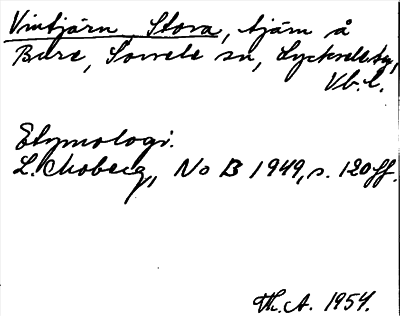 Vintjärn, Stora, tjärn å
Bure, Sorsele sn, Lycksele tg,
Vb. l.
Etymologi.
L. Moberg, No B 1949, s. 120 ff.
Th. A. 1954.